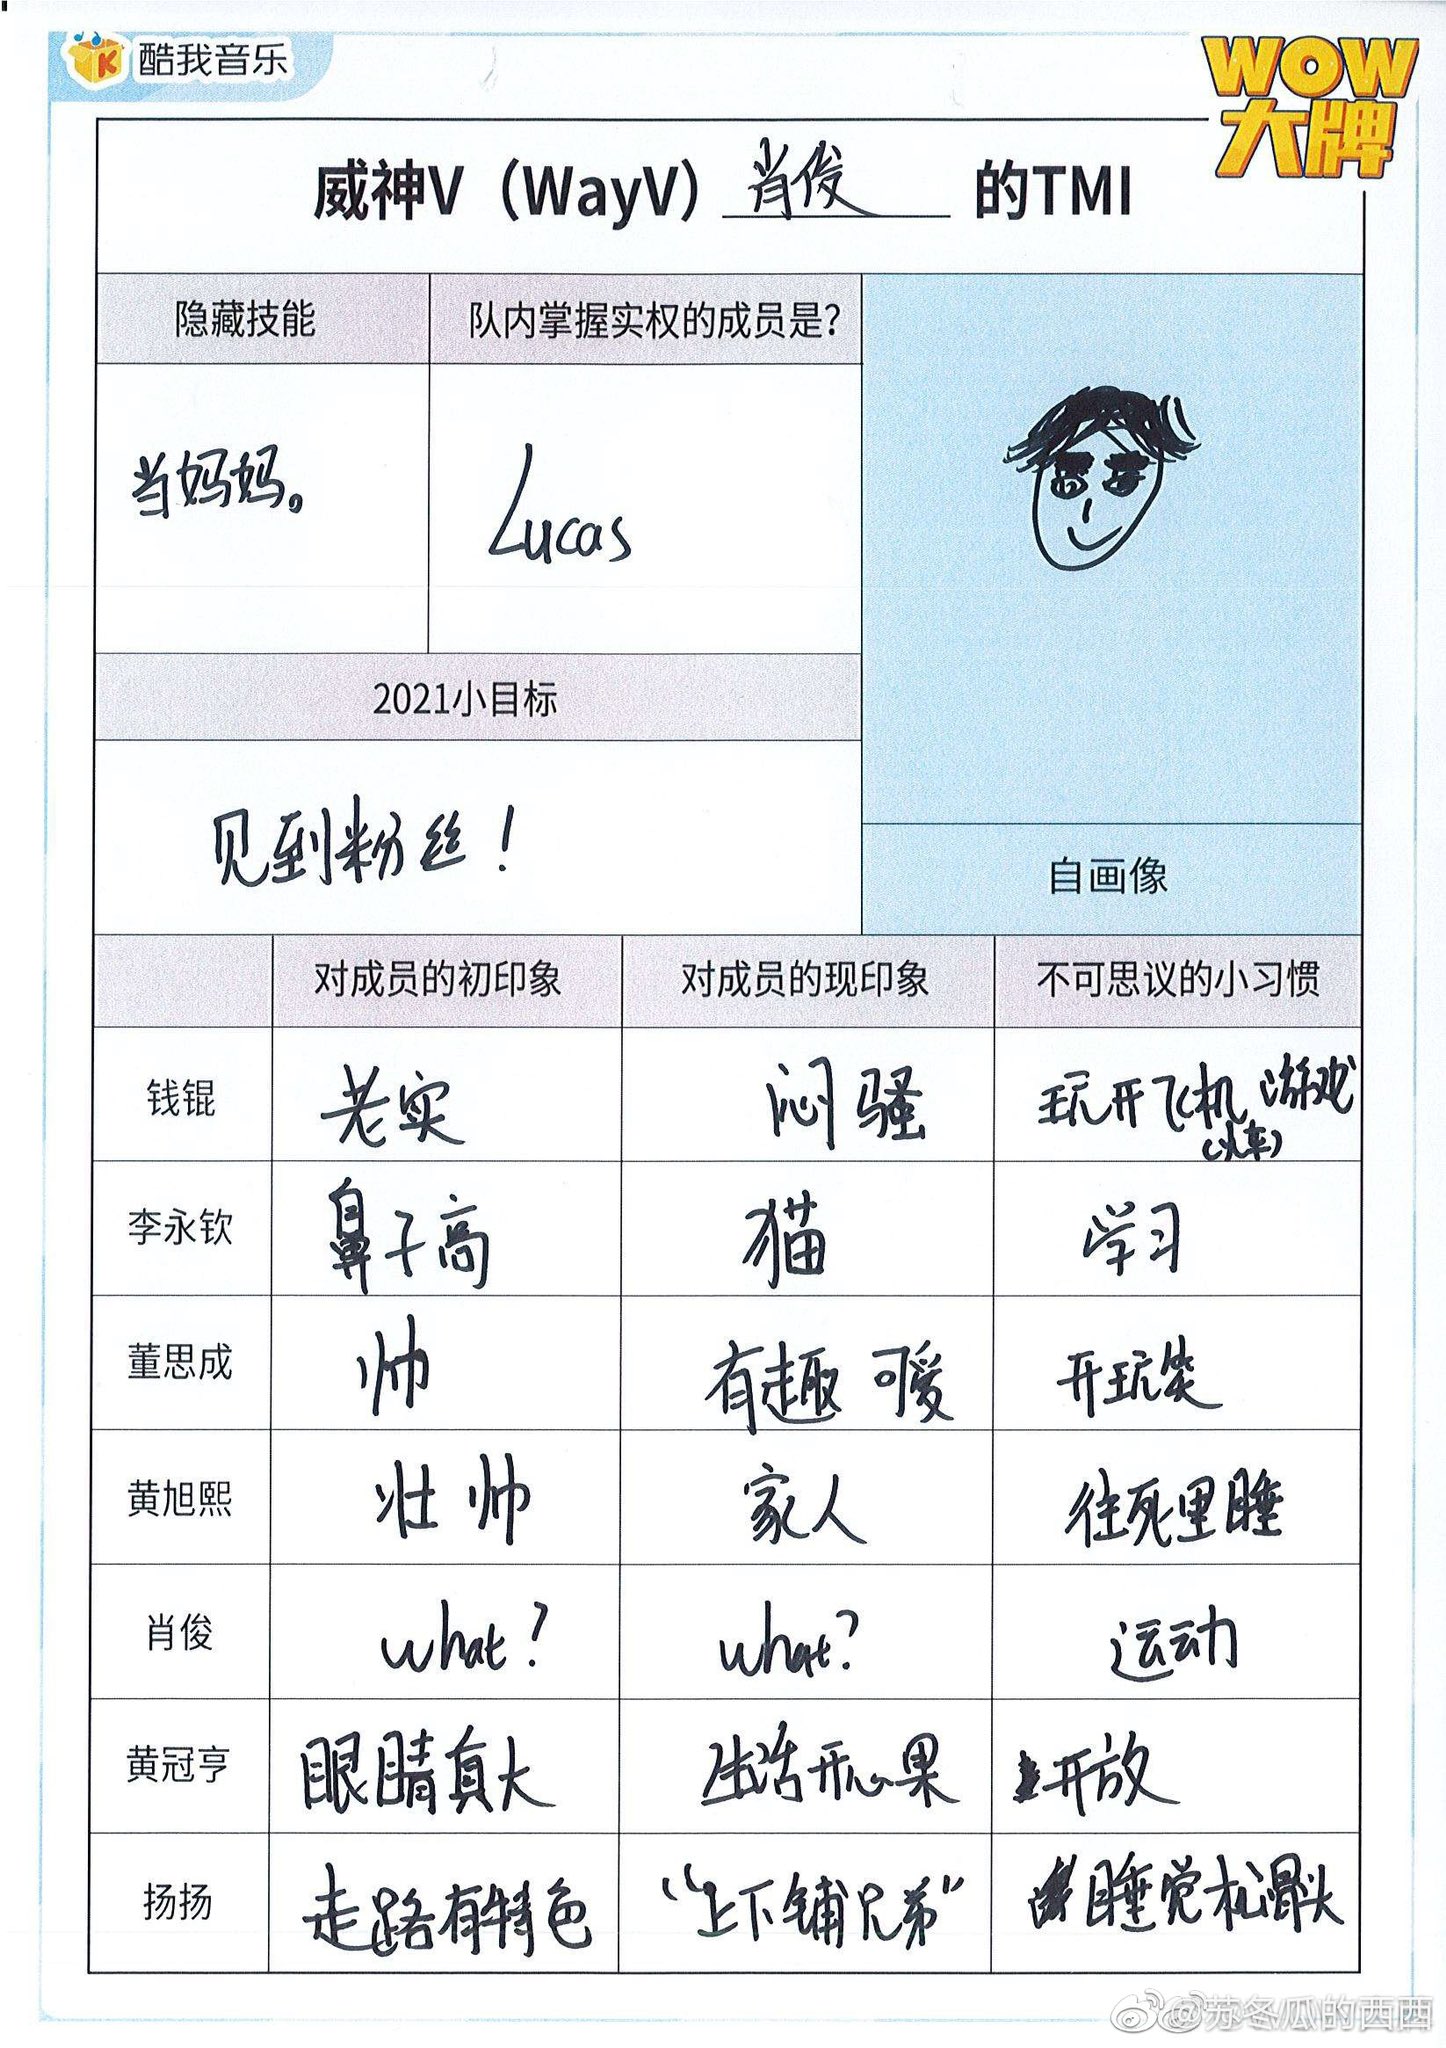 酷我音乐
WOW
大牌
威神V（WayV）肖俊 的TMI
隐藏技能
队内掌握实权的成员是？
当妈妈。
Lucas
2021小目标
见到粉丝！
自画像
对成员的初印象
对成员的现印象
不可思议的小习惯
钱锟
老实
闷骚
玩开飞机游戏
(火车)
李永钦
鼻子高
猫
学习
董思成
帅
有趣 可爱
开玩笑
黄旭熙
壮 帅
家人
往死里睡
肖俊
what?
what?
运动
黄冠亨
眼睛真大
生活开心果
开放
扬扬
走路有特色
“上下铺兄弟”
睡觉松骨头
@苏冬瓜的西西